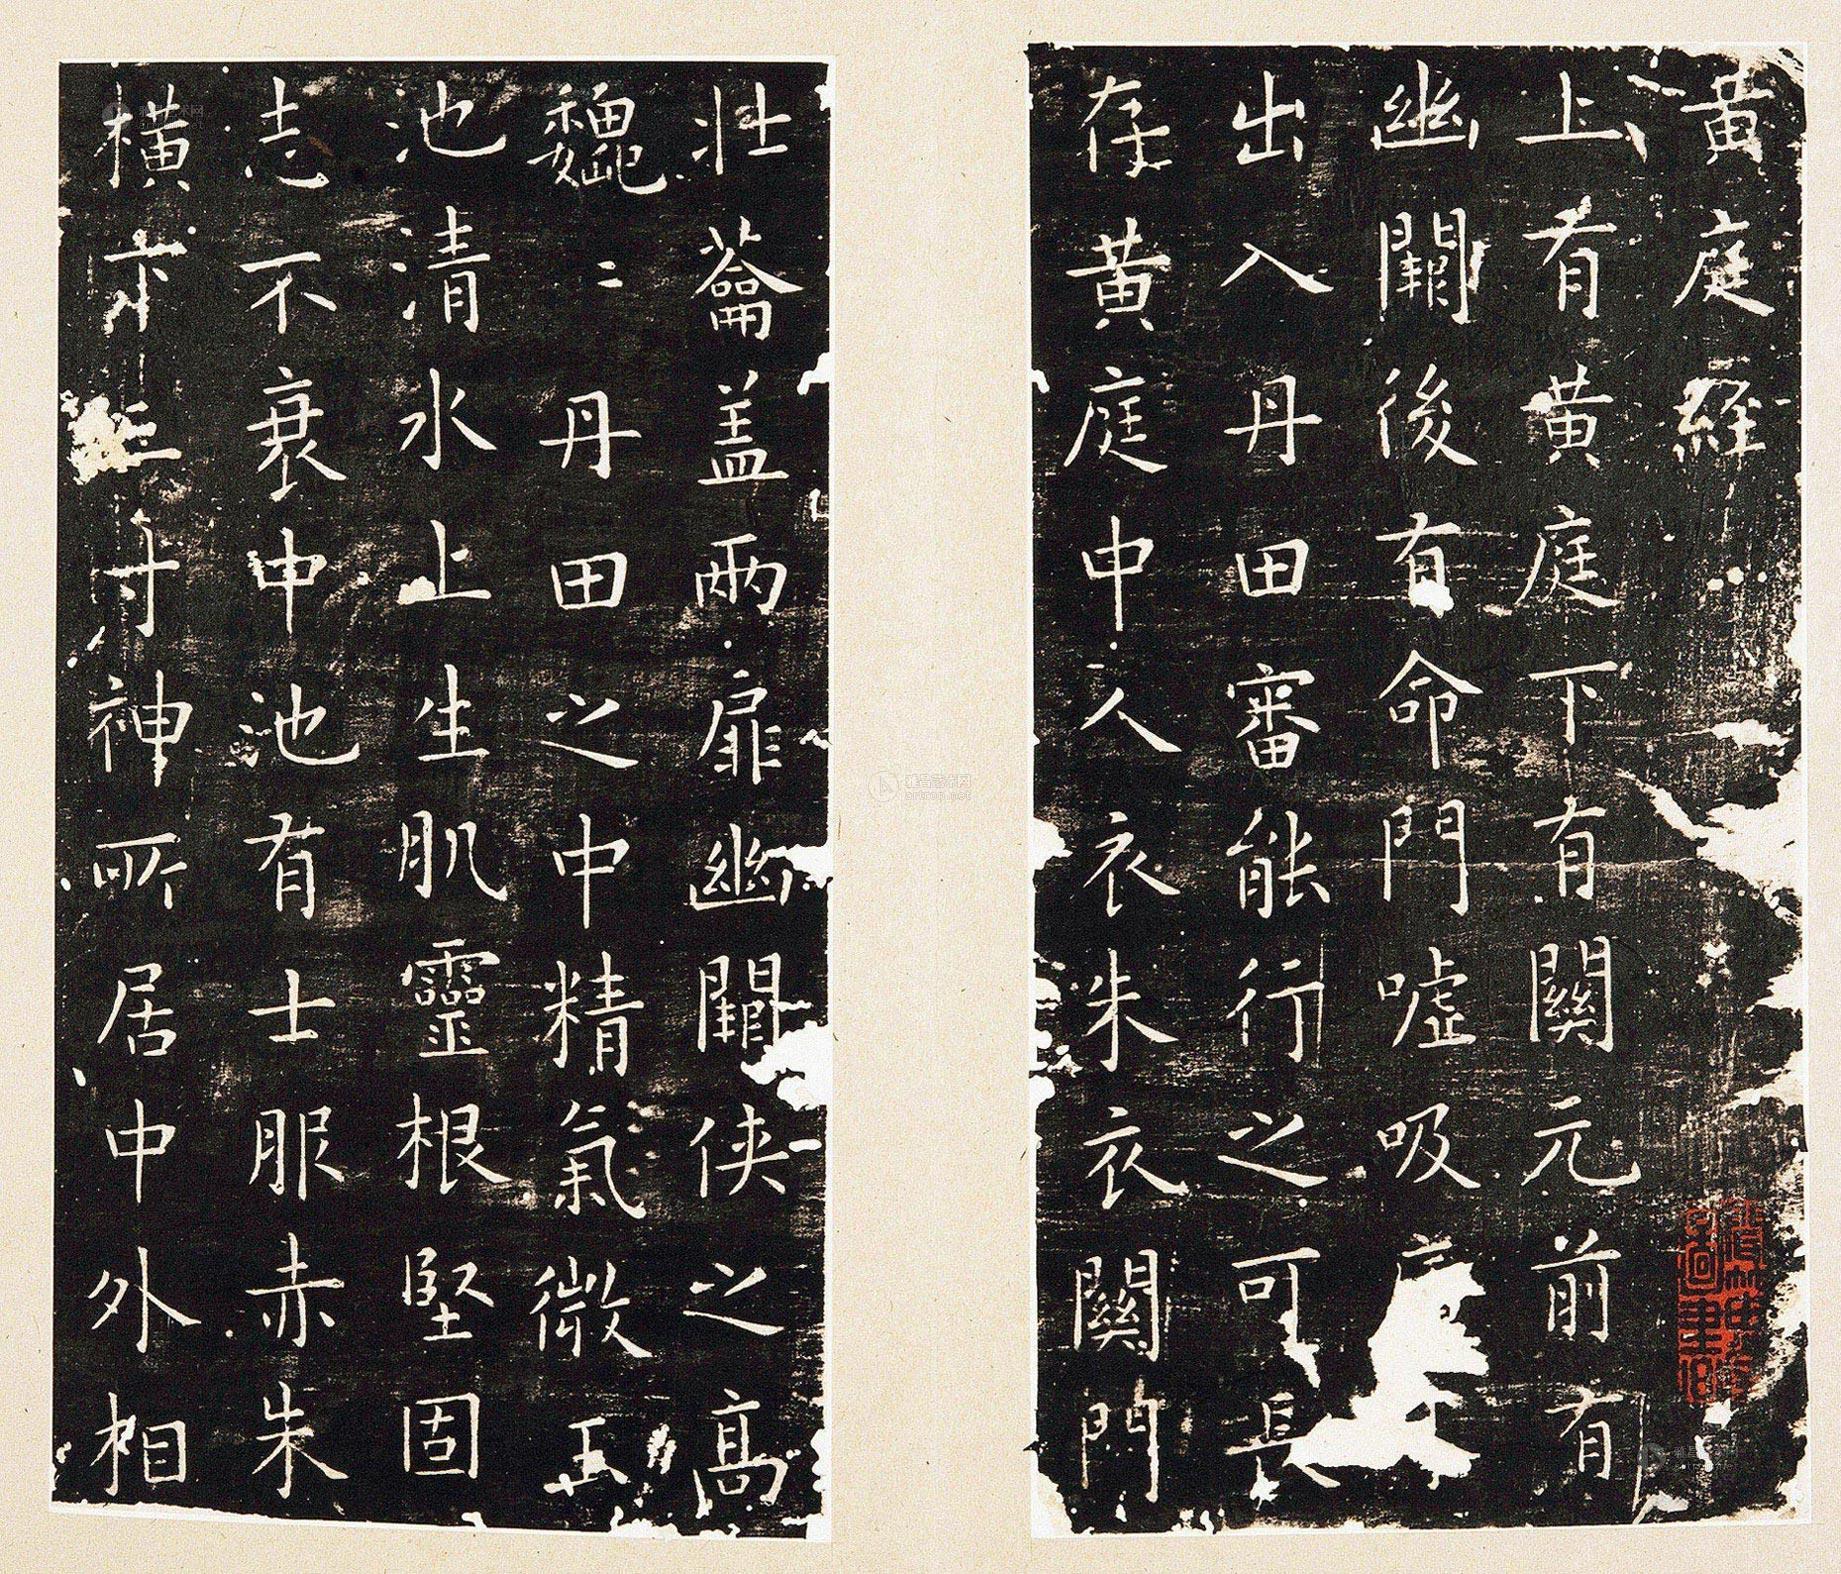 黄庭經
上有黄庭下有關元前有
幽闕後有命門噓吸
出入丹田審能行之可長
存黄庭中人衣朱衣關門
壯蘥蓋兩扉幽闕俠之高
巍二丹田之中精氣微玉
池清水上生肌靈根堅固
志不衰中池有士服赤朱
横下三寸神所居中外相
雅昌艺术网
artron.net